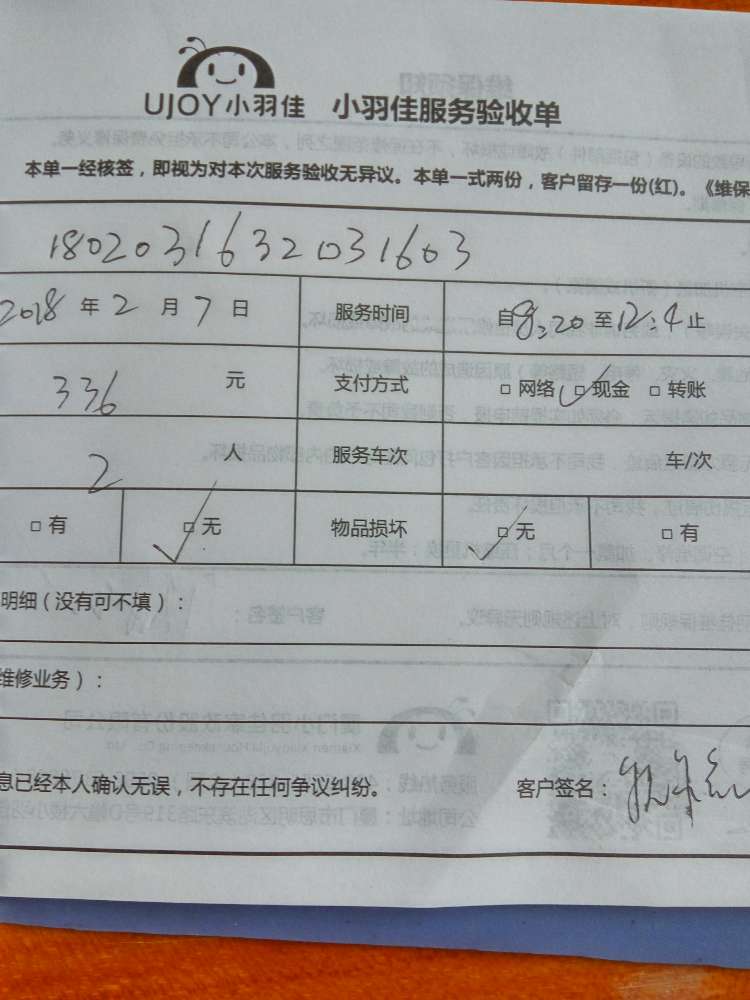 UJOY小羽佳 小羽佳服务验收单
本单一经核签，即视为对本次服务验收无异议。本单一式两份，客户留存一份(红)。《维保
1802031632031603
2018 年 2 月 7 日 服务时间 自8:20 至12:4止
336 元 支付方式 □ 网络 □ 现金 □ 转账
2 人 服务车次 车/次
□ 有 □ 无 物品损坏 □ 无 □ 有
明细（没有可不填）：
维修业务）：
息已经本人确认无误，不存在任何争议纠纷。 客户签名：